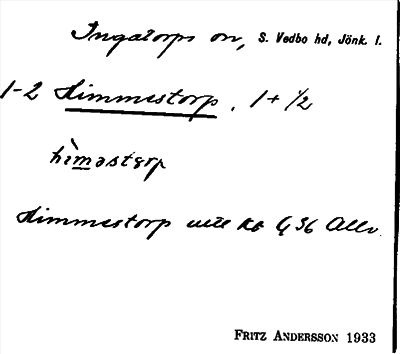 Ingatorps sn, S. Vedbo hd, Jönk. l.
1-2 Himmestorp. 1 + 1/2
hìmastɘrp
Himmestorp utt kb 436 Allv.
FRITZ ANDERSSON 1933